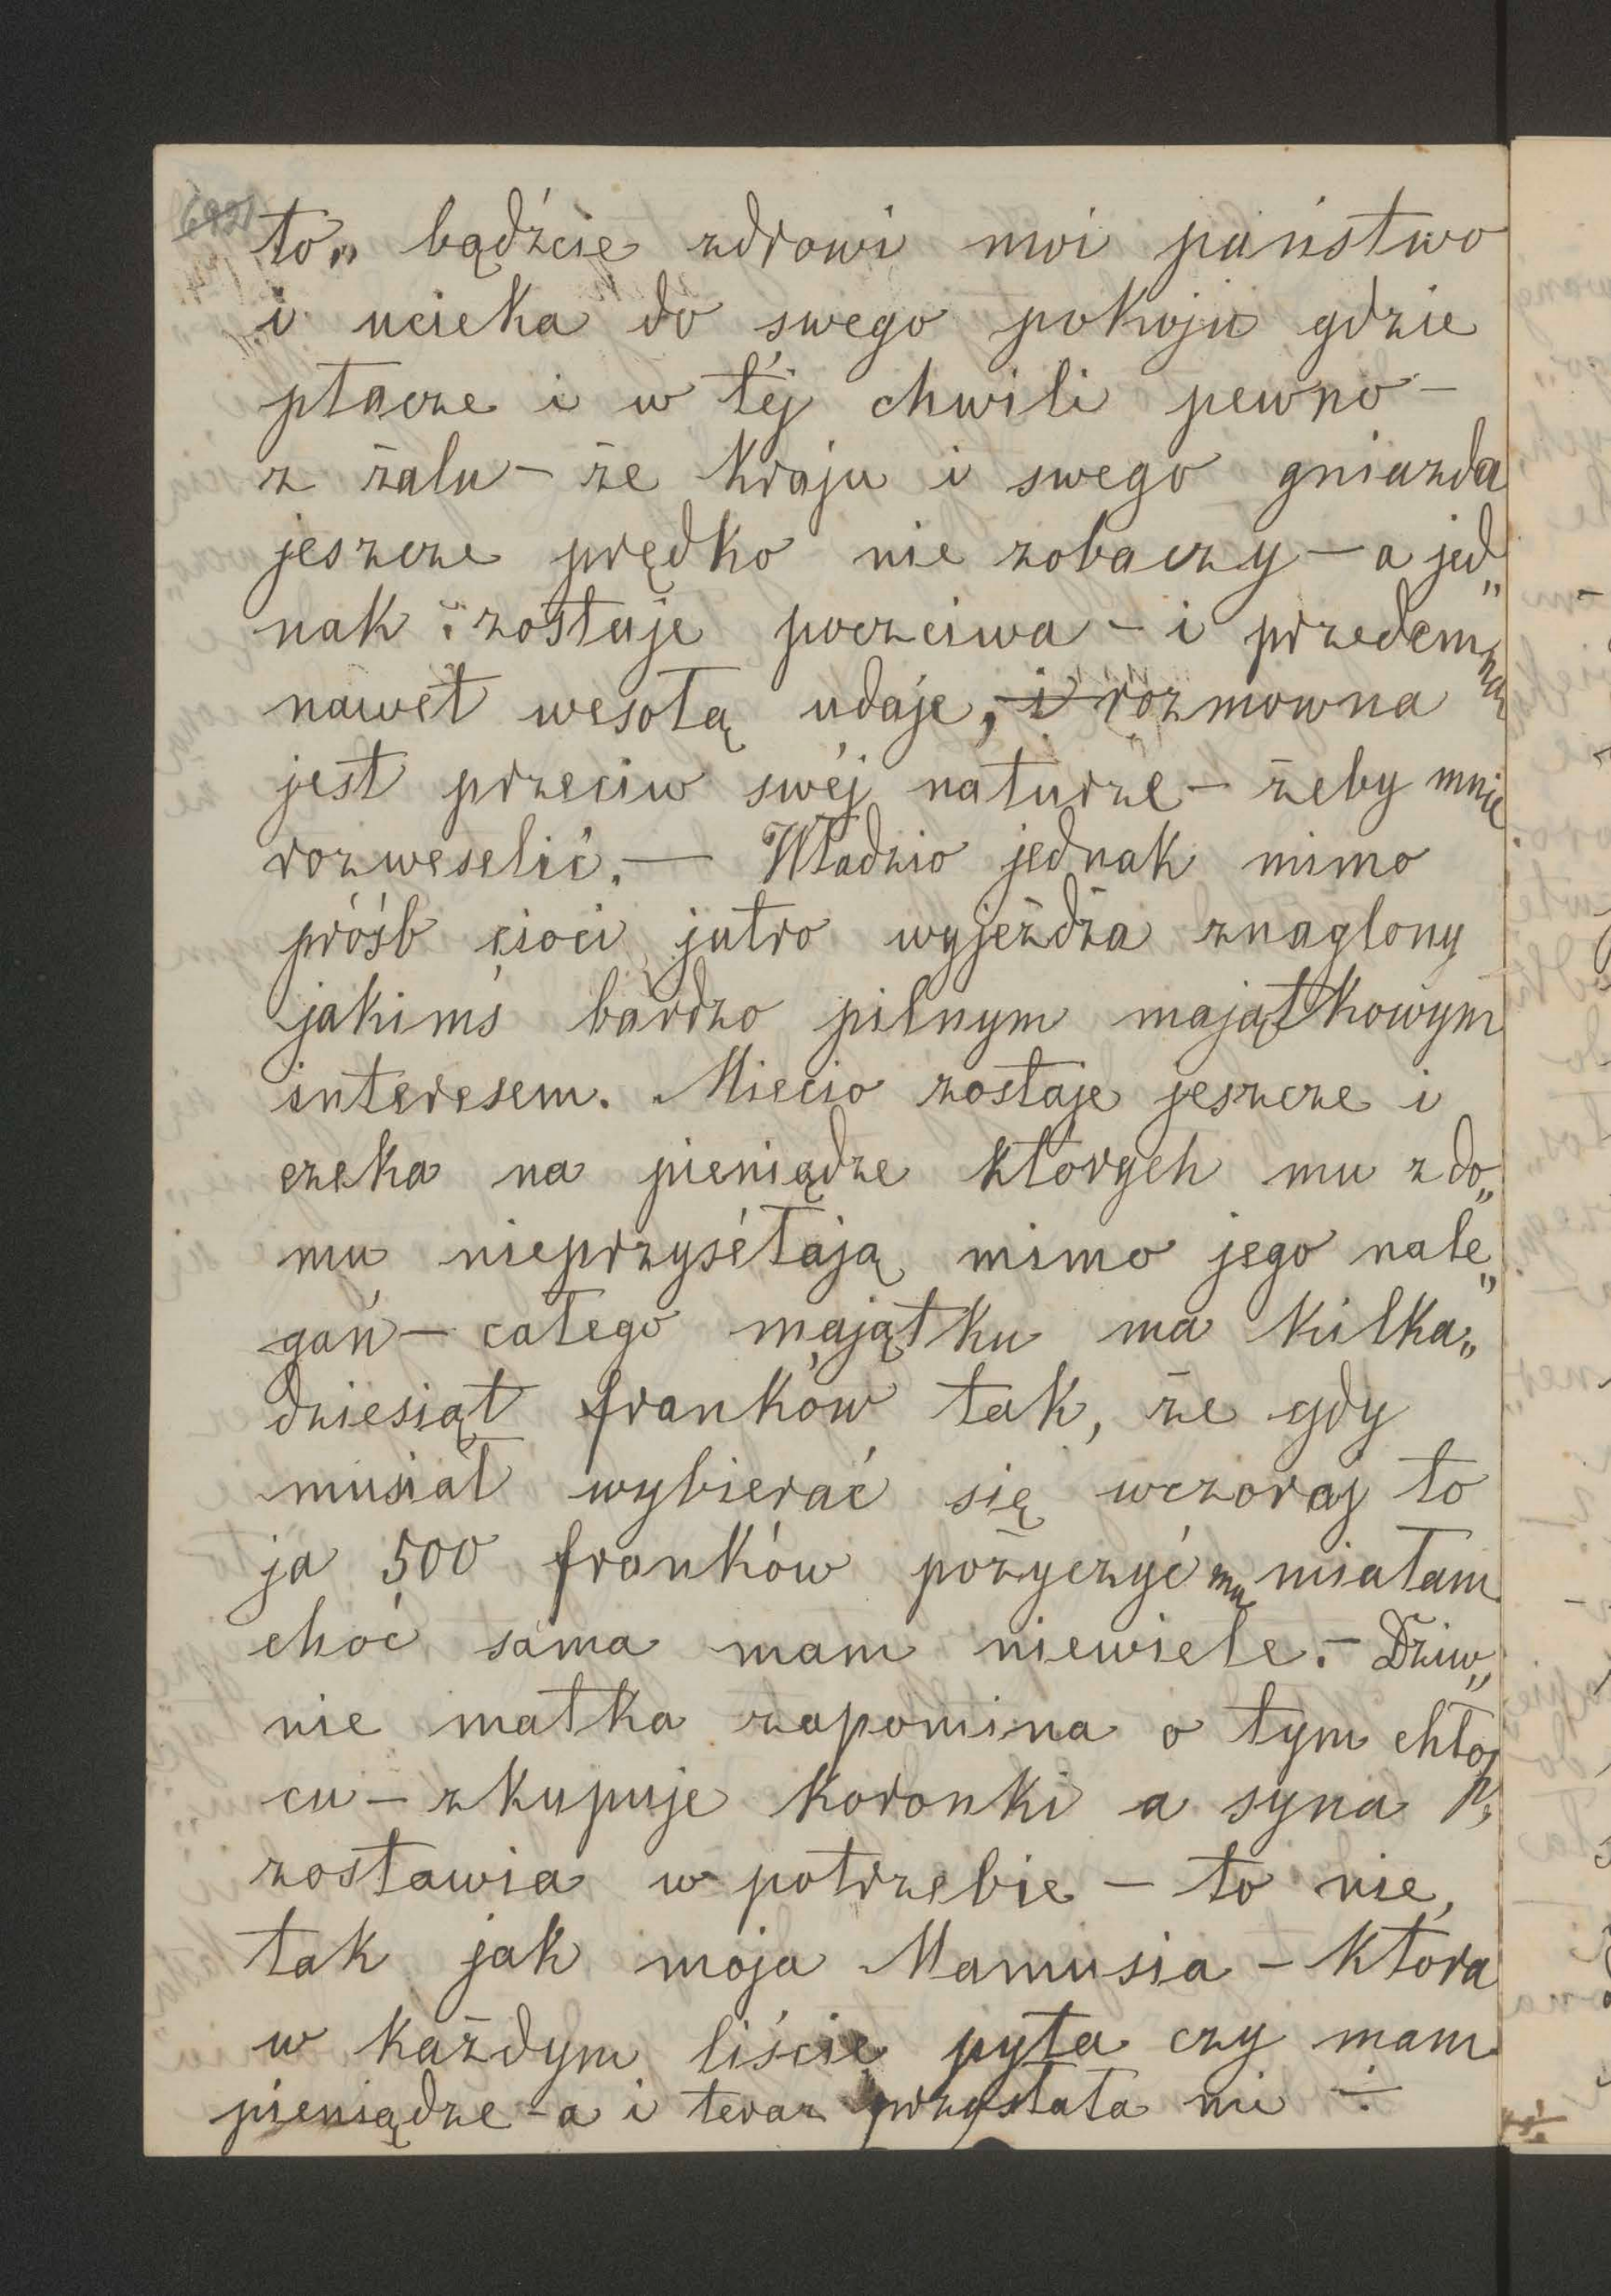 to„ bądźcie zdrowi moi państwo
i ucieka do swego pokoju gdzie
płacze i w téj chwili pewno –
z żalu – że kraju i swego gniazda
jeszcze prędko nie zobaczy – a jed„
nak zostaje poczciwa – i przedemną
nawet wesołą udaje, i rozmowna
jest przeciw swéj naturze – żeby mnie
rozweselić. — Władzio jednak mimo
próśb cioci jutro wyjeżdża znaglony
jakimś bardzo pilnym majątkowym
interesem. Miecio zostaje jeszcze i
czeka na pieniądze których mu z do„
mu nieprzysétają mimo jego nale„
gań – całego majątku ma kilka„
dziesiąt franków tak, że gdy
musiał wybierać się wczoraj to
ja 500 franków pożyczyć mu miałam
choć sama mam niewiele. – Dziw„
nie matka zapomina o tym chłop
cu – zkupuje koronki a syna
zostawia w potrzebie – to nie,
tak jak moja Mamusia – która
w każdym liście pyta czy mam
pieniądze – a i teraz przysłała mi ÷